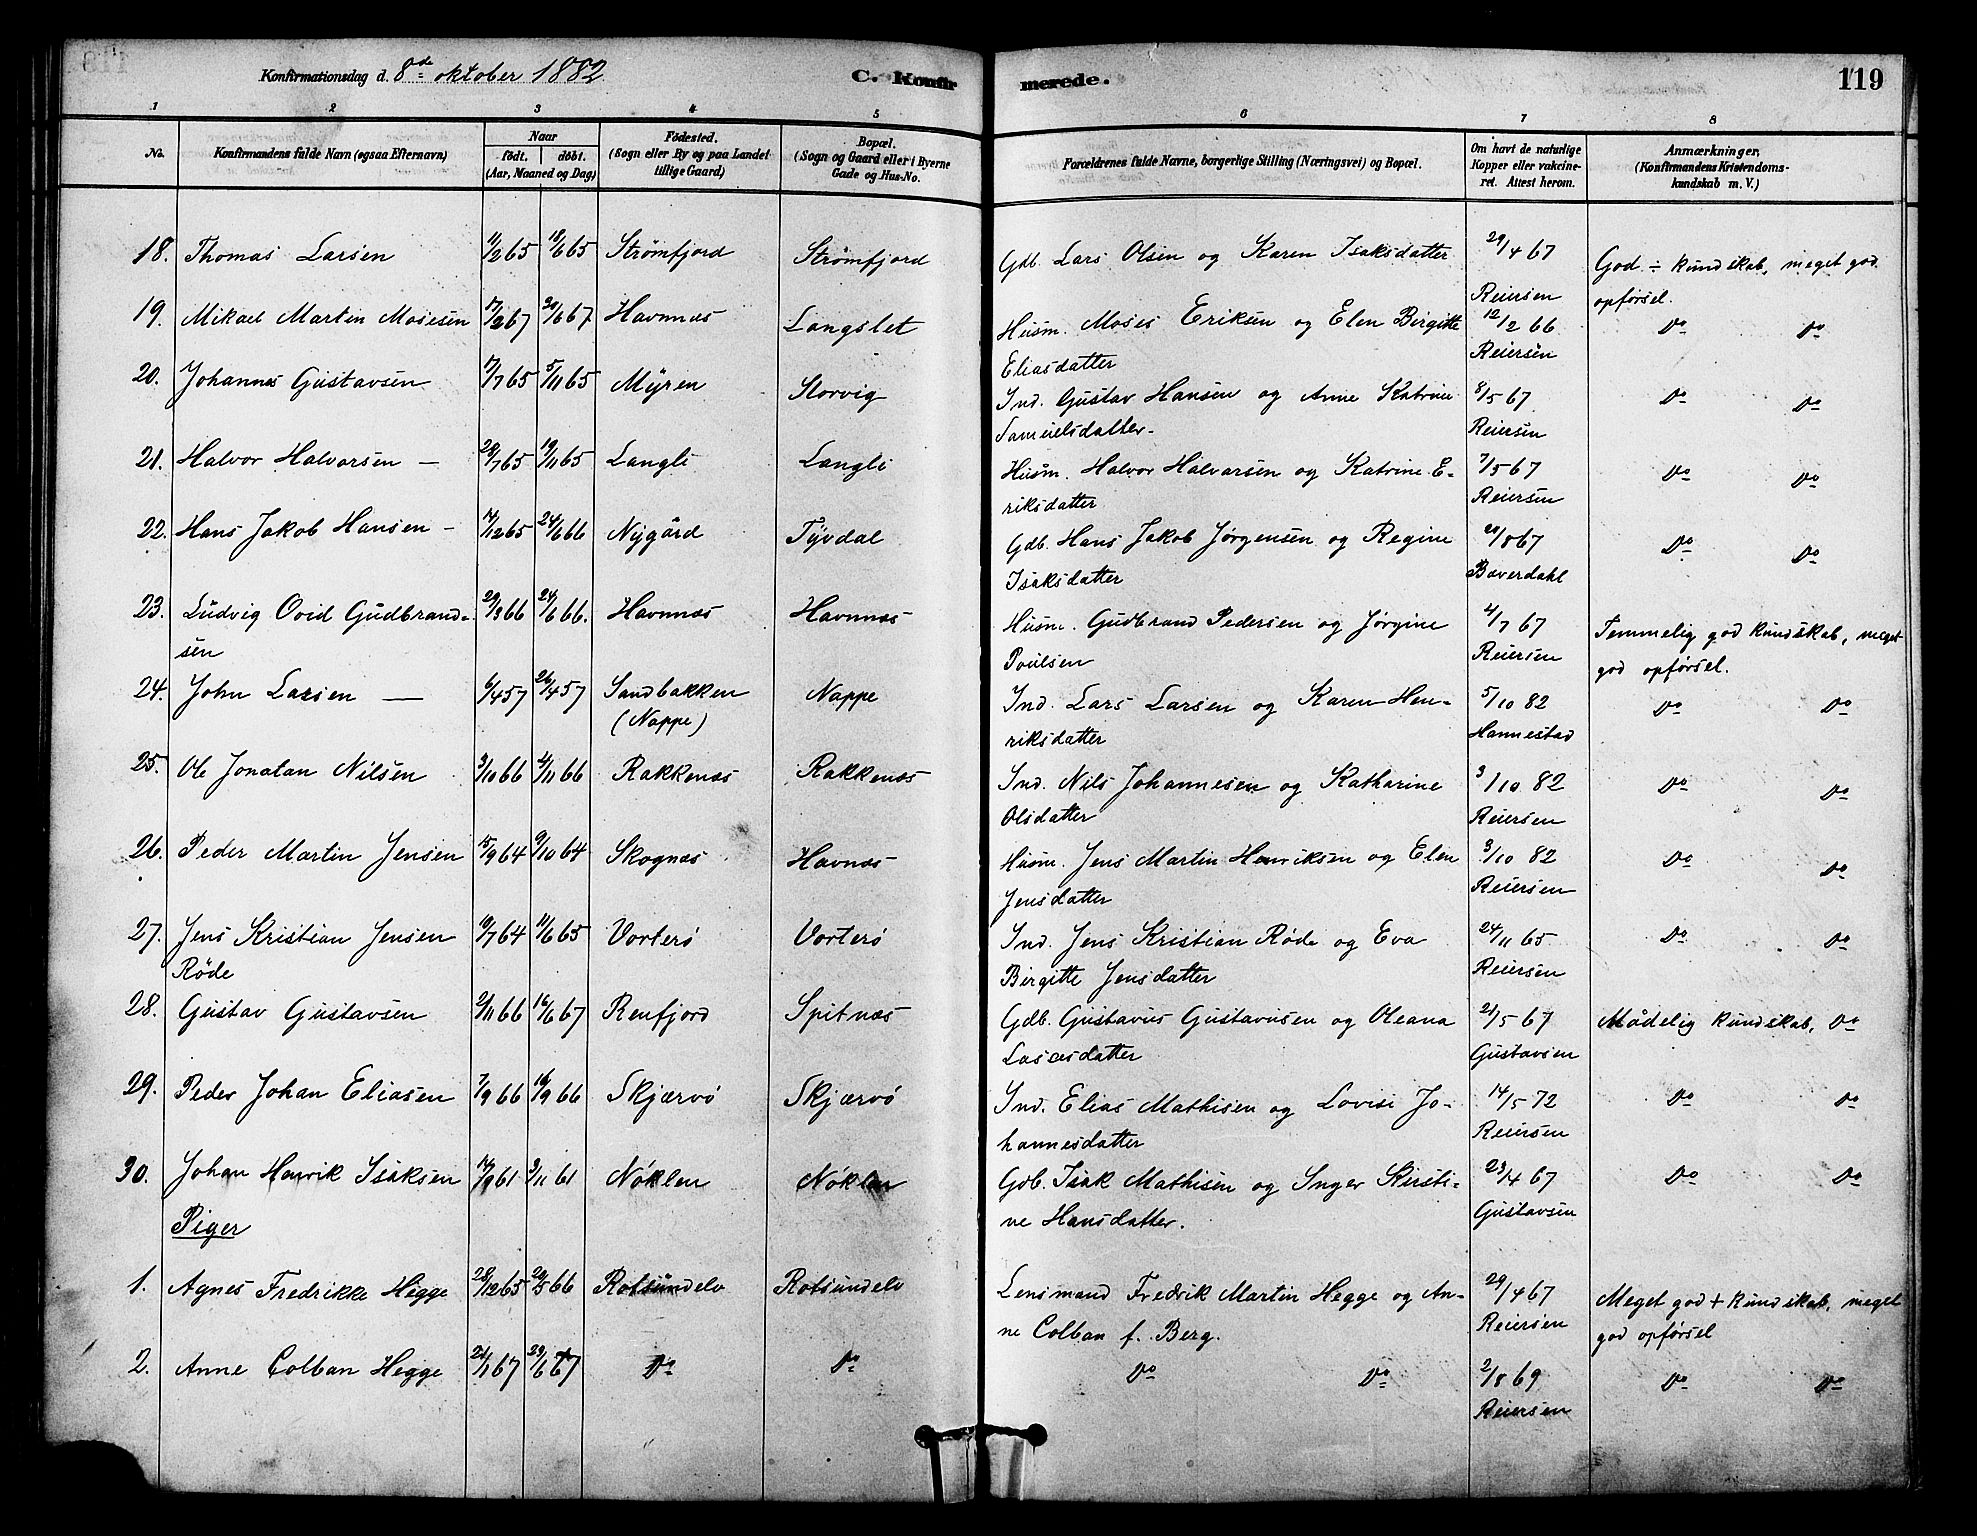 Konfirmationsdag d. 8de oktober 1882
C. Konfir merede. 119
1 2 3 4 5 6 7 8
No. Konfirmandens fulde Navn (ogsaa Efternavn)
Naar
født. døbt.
(Aar, Maaned og Dag)
Fødested.
(Sogn eller By og paa Landet
tillige Gaard)
Bopæl.
(Sogn og Gaard eller i Byerne
Gade og Hus-No.
Forældrenes fulde Navne, borgerlige Stilling (Næringsvei) og Bopæl.
Om havt de naturlige
Kopper eller vakcine-
ret. Attest herom.
Anmærkninger,
(Konfirmandens Kristendoms-
kundskab m. V.)
18. Thomas Larsen 11/2 65 18/6 65 Strømfjord Strømfjord Gdb. Lars Olsen og Karen Isaksdatter 29/4 67 God ÷ kundskab, meget god
Reiersen opførsel.
19. Mikael Martin Mosesen 17/2 67 30/6 67 Havnnæs Langslet Husm. Moses Eriksen og Elen Birgitte 12/2 66 Do Do
Eliasdatter Reiersen
20. Johannes Gustavsen 17/7 65 5/11 65 Myren Storvig Ind. Gustav Hansen og Anne Katrine 8/5 67 Do Do
Samuelsdatter. Reiersen
21. Halvor Halvorsen — 28/7 65 19/11 65 Langli Langli Husm. Halvor Halvorsen og Katrine E- 7/5 67 Do Do
riksdatter Reiersen
22. Hans Jakob Hansen – 14/12 65 24/6 66 Nygård Tyvdal Gdb. Hans Jakob Jørgensen og Regine 20/8 67 Do Do
Isaksdatter Baverdahl
23. Ludvig Ovid Gudbrand- 29/3 66 24/6 66. Havnnæs Havnnæs Husm. Gudbrand Pedersen og Jørgine 4/7 67 Temmelig god kundskab, meget
sen Poulsen Reiersen god opførsel.
24. John Larsen — 6/4 57 26/4 57 Sandbakken Nappe Ind. Lars Larsen og Karen Hen- 5/10 82 Do Do
(Nappe) riksdatter Hannestad
25. Ole Jonatan Nilsen 3/10 66 4/11 66 Rakkenæs Rakkenæs Ind. Nils Johannesen og Katharine 3/10 82 Do Do
Olsdatter Reiersen
26. Peder Martin Jensen 15/9 64 9/10 64 Skognæs Havnæs Husm. Jens Martin Henriksen og Elen 3/10 82 Do Do
Jensdatter Reiersen
27. Jens Kristian Jensen 19/7 64 11/6 65 Vorterø Vorterø Ind. Jens Kristian Røde og Eva 24/11 65 Do Do
Røde Birgitte Jensdatter Reiersen
28. Gustav Gustavsen 2/11 66 16/6 67 Renfjord Spitnæs Gdb. Gustavus Gustavusen og Oleana 21/5 67 Mådelig kundskab, Do
Larsdatter Gustavsen
29. Peder Johan Eliasen 7/9 66 16/9 66 Skjærvö Skjærvö Ind. Elias Mathisen og Lovise Jo- 14/5 72 Do Do
hannesdatter Reiersen
30. Johan Henrik Isaksen 14/9 61 3/11 61 Nøklen Nøklen Gdb. Isak Mathisen og Inger Kirsti- 23/4 67 Do Do
ne Hansdatter. Gustavsen
Piger
1. Agnes Fredrikke Hegge 28/12 65 20/5 66 Rotsundelv Rotsundelv Lensmand Fredrik Martin Hegge og An- 29/4 67 Meget god + kundskab, meget
ne Colban f. Berg. Reiersen god opførsel
2. Anne Colban Hegge 21/1 67 23/6 67 Do Do Do Do 2/8 69 Do Do
Reiersen